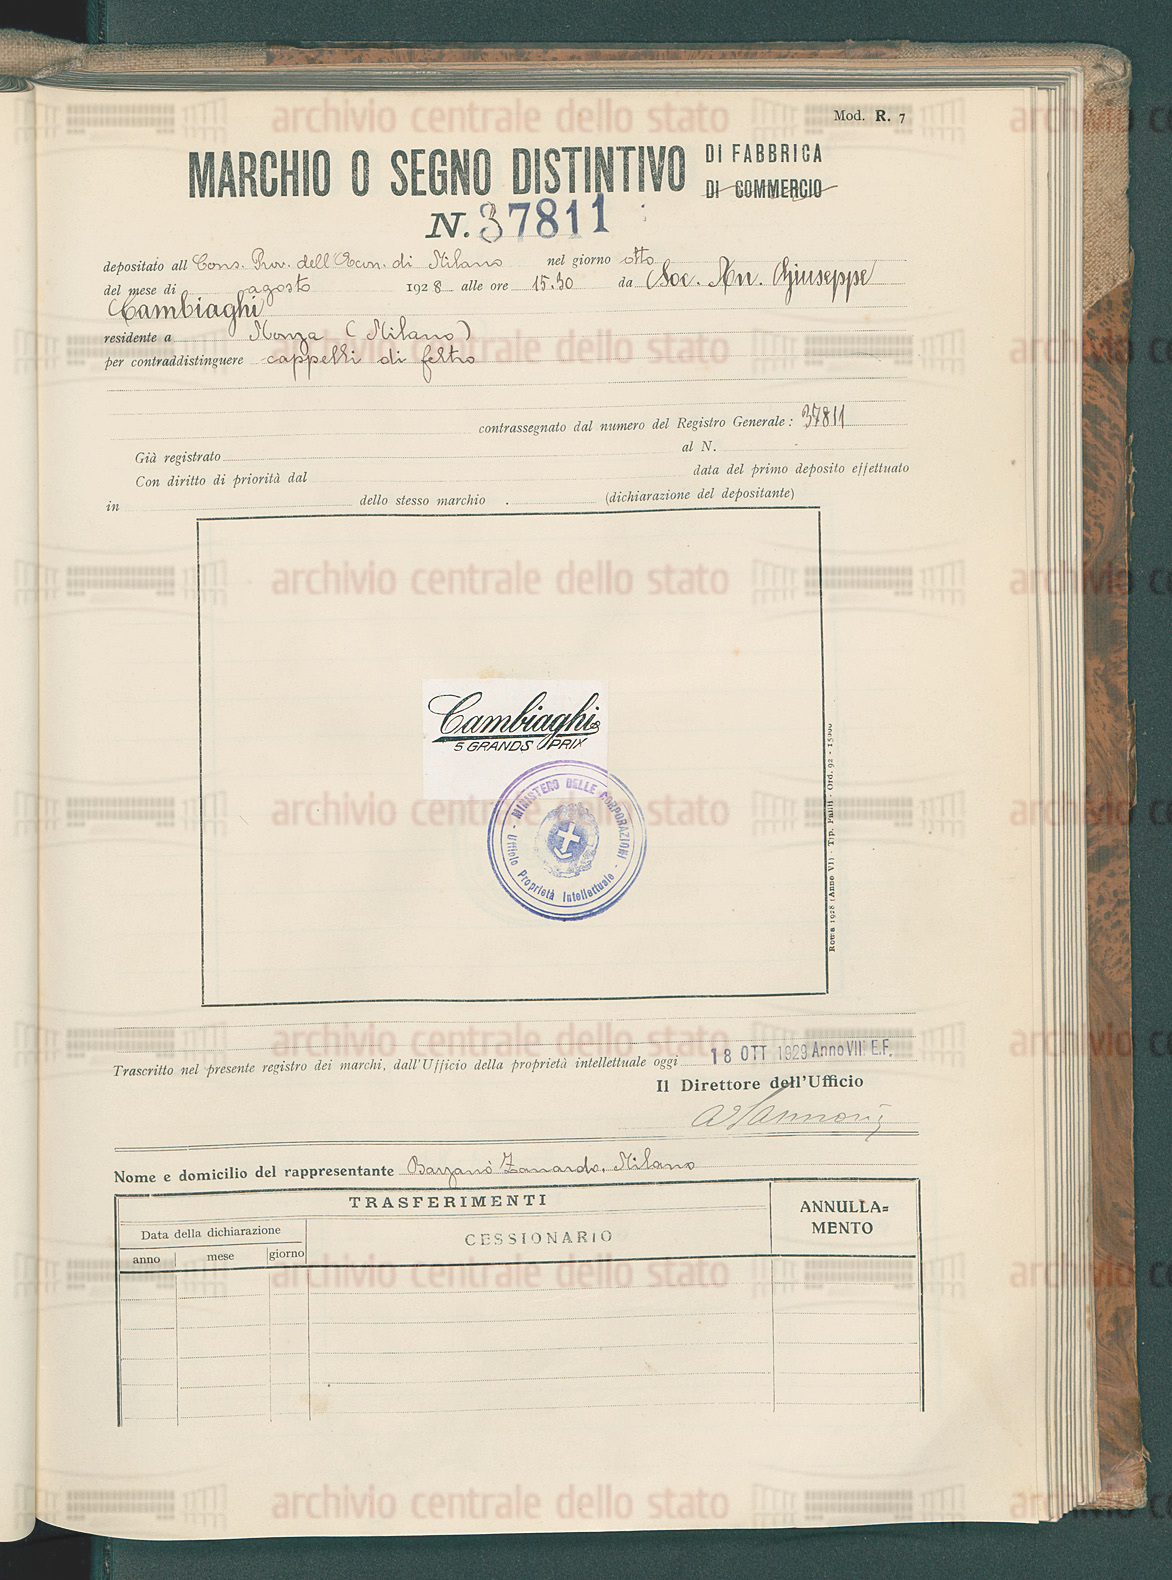 Mod. R. 7
MARCHIO O SEGNO DISTINTIVO DI FABBRICA
DI COMMERCIO
N. 37811
depositato all Cons. Prov. dell'Econ. di Milano nel giorno otto
del mese di agosto 1928 alle ore 15.30 da Soc. An. Giuseppe
Cambiaghi
residente a Monza (Milano)
per contraddistinguere cappelli di feltro
contrassegnato dal numero del Registro Generale: 37811
Già registrato al N.
Con diritto di priorità dal data del primo deposito effettuato
in dello stesso marchio (dichiarazione del depositante)
Cambiaghi
5 GRANDS PRIX
MINISTERO DELLE CORPORAZIONI
Ufficio Proprietà Intellettuale
Roma 1928 (Anno VI) - Tip. Failli - Ord. 92 - 15000
Trascritto nel presente registro dei marchi, dall'Ufficio della proprietà intellettuale oggi 18 OTT 1929 Anno VII E.F.
Il Direttore dell'Ufficio
Nome e domicilio del rappresentante Barzanò Zanardo, Milano
TRASFERIMENTI
ANNULLA=
MENTO
Data della dichiarazione
CESSIONARIO
anno mese giorno
archivio centrale dello stato